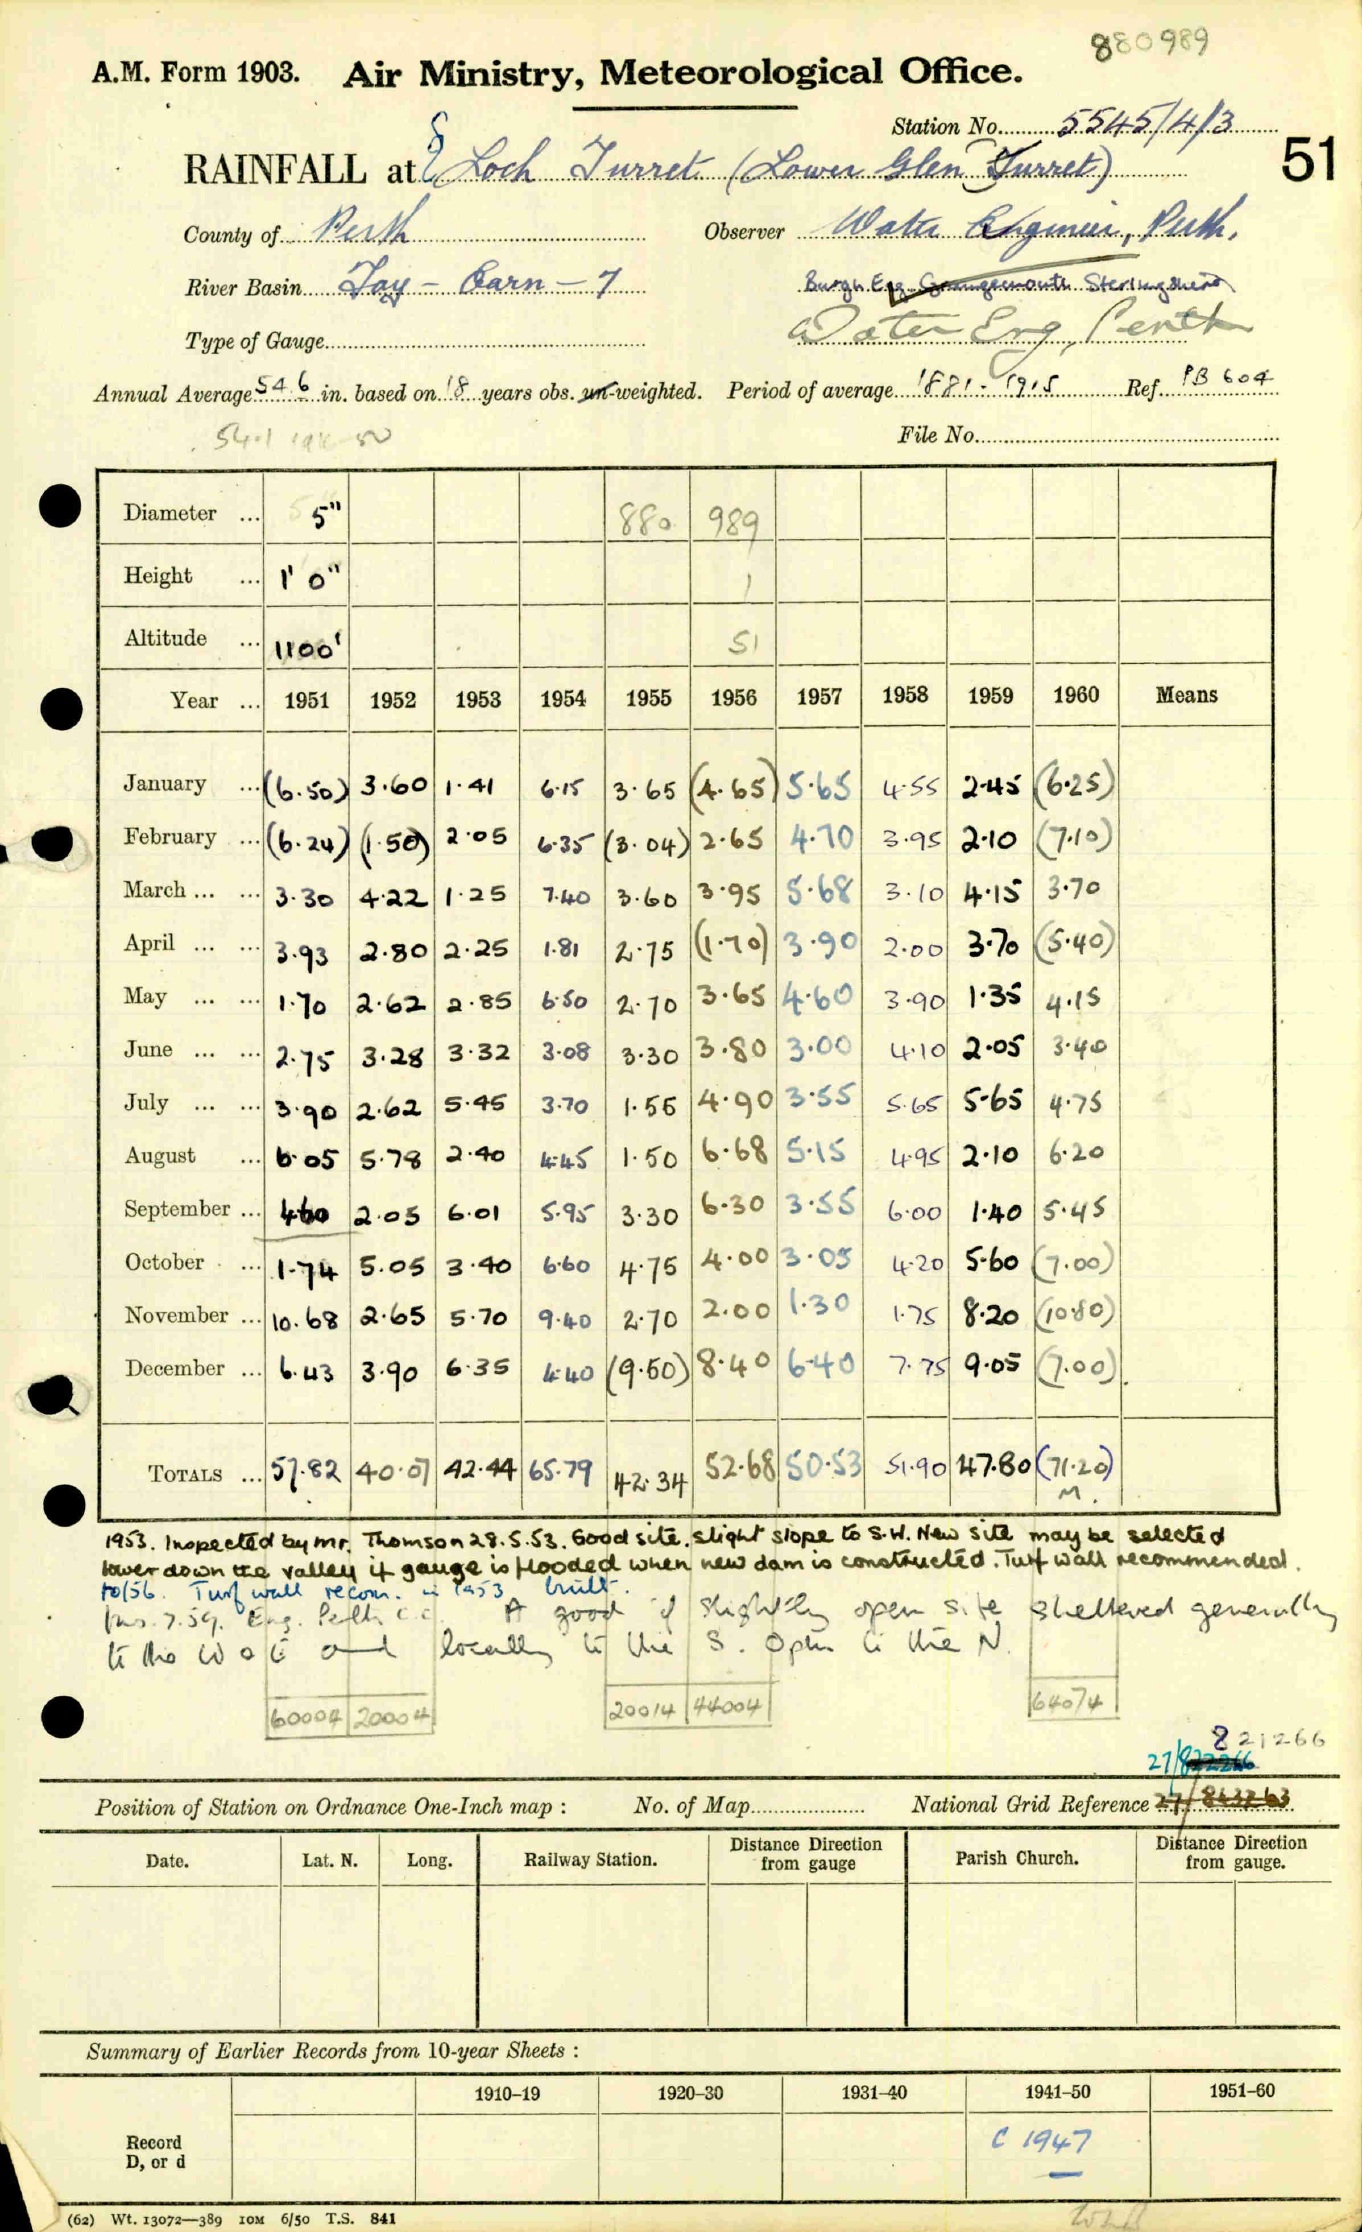 880989
A.M. Form 1903. Air Ministry, Meteorological Office.
Station No. 5545/4/3
RAINFALL at Loch Turret (Lower Glen Turret)
51
County of Perth Observer Water Engineer, Perth.
River Basin Tay - Earn - 7 Burgh Eng. Grangemouth Stirlingshire
Type of Gauge Water Eng. Perth
Annual Average 54.6 in. based on 18 years obs. un-weighted. Period of average 1881-1915 Ref. PB 604
54.1
File No.
Diameter ... 5" 880 989
Height ... 1' 0" 1
Altitude ... 1100' 51
Year ... 1951 1952 1953 1954 1955 1956 1957 1958 1959 1960 Means
January ... (6.50) 3.60 1.41 6.15 3.65 (4.65) 5.65 4.55 2.45 (6.25)
February ... (6.24) (1.50) 2.05 6.35 (3.04) 2.65 4.70 3.95 2.10 (7.10)
March ... ... 3.30 4.22 1.25 7.40 3.60 3.95 5.68 3.10 4.15 3.70
April ... ... 3.93 2.80 2.25 1.81 2.75 (1.70) 3.90 2.00 3.70 (5.40)
May ... ... 1.70 2.62 2.85 6.50 2.70 3.65 4.60 3.90 1.35 4.15
June ... ... 2.75 3.28 3.32 3.08 3.30 3.80 3.00 4.10 2.05 3.40
July ... ... 3.90 2.62 5.45 3.70 1.55 4.90 3.55 5.65 5.65 4.75
August ... 6.05 5.78 2.40 4.45 1.50 6.68 5.15 4.95 2.10 6.20
September ... 4.60 2.05 6.01 5.95 3.30 6.30 3.55 6.00 1.40 5.45
October ... 1.74 5.05 3.40 6.60 4.75 4.00 3.05 4.20 5.60 (7.00)
November ... 10.68 2.65 5.70 9.40 2.70 2.00 1.30 1.75 8.20 (10.80)
December ... 6.43 3.90 6.35 4.40 (9.50) 8.40 6.40 7.75 9.05 (7.00)
TOTALS ... 57.82 40.07 42.44 65.79 42.34 52.68 50.53 51.90 47.80 (71.20)
M.
1953. Inspected by Mr. Thomson 28.5.53. Good site. Slight slope to S.W. New site may be selected
lower down the valley if gauge is flooded when new dam is constructed. Turf wall recommended.
10/56. Turf wall recom. in 1953 built.
Ins. 7.59. Eng. Perth C.C. A good if slightly open site sheltered generally
to the W & E and locally to the S. Open to the N.
60004 20004 20014 44004 64074
8 21266
27/822266
Position of Station on Ordnance One-Inch map : No. of Map National Grid Reference 27/843263
Date. Lat. N. Long. Railway Station. Distance Direction from gauge Parish Church. Distance Direction from gauge.
Summary of Earlier Records from 10-year Sheets :
1910–19 1920–30 1931–40 1941–50 1951–60
Record
D, or d
C 1947
(62) Wt. 13072—389 10M 6/50 T.S. 841